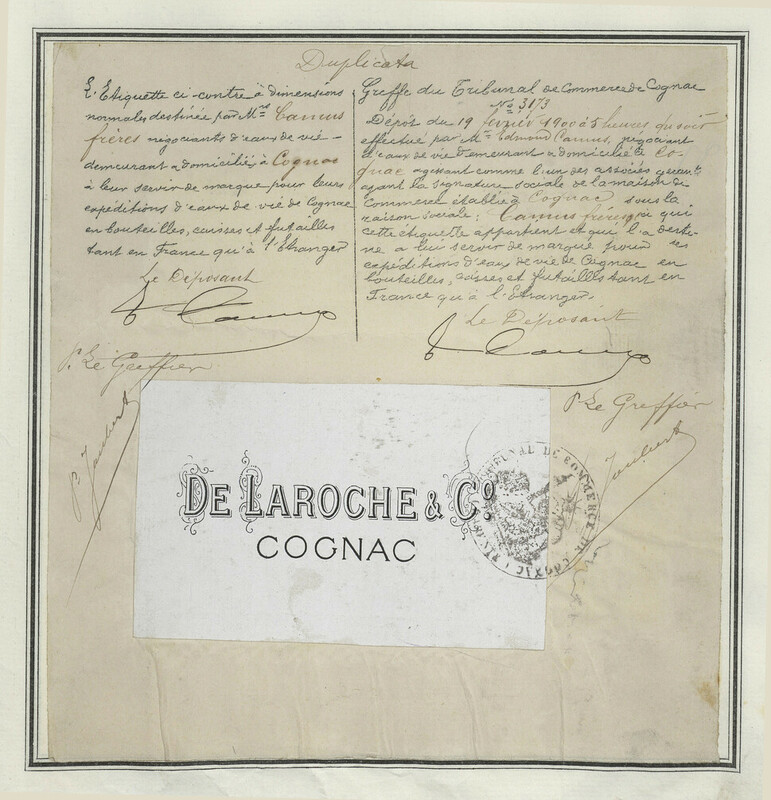 Duplicata
L'Etiquette ci-contre à dimensions
normales destinée par Mrs Camus
frères négociants d'eaux de vie
demeurant & domicilié à Cognac
à leur servir de marque pour leurs
expéditions d'eaux de vie de Cognac
en bouteilles, caisses et futailles
tant en France qu'à l'Etranger
Le Déposant
E Camus
Pr Le Greffier
P. Jaubert
Greffe du Tribunal de Commerce de Cognac
No 3173
Dépôt du 19 février 1900 à 5 heures du soir
effectué par Mr Edmond Camus, négociant
d'eaux de vie demeurant & domicilié à Co-
gnac agissant comme l'un des associés gérants
ayant la signature sociale de la maison de
Commerce établie à Cognac sous la
raison sociale: Camus frères, à qui
cette étiquette appartient et qui l'a desti-
né a lui servir de marque pour ses
expéditions d'eau de vie de Cognac en
bouteilles, caisses et futailles tant en
France qu'à l'Etranger.
Le Déposant
E Camus
Pr Le Greffier
Jaubert
DE LAROCHE & Co
COGNAC
TRIBUNAL DE COMMERCE DE COGNAC